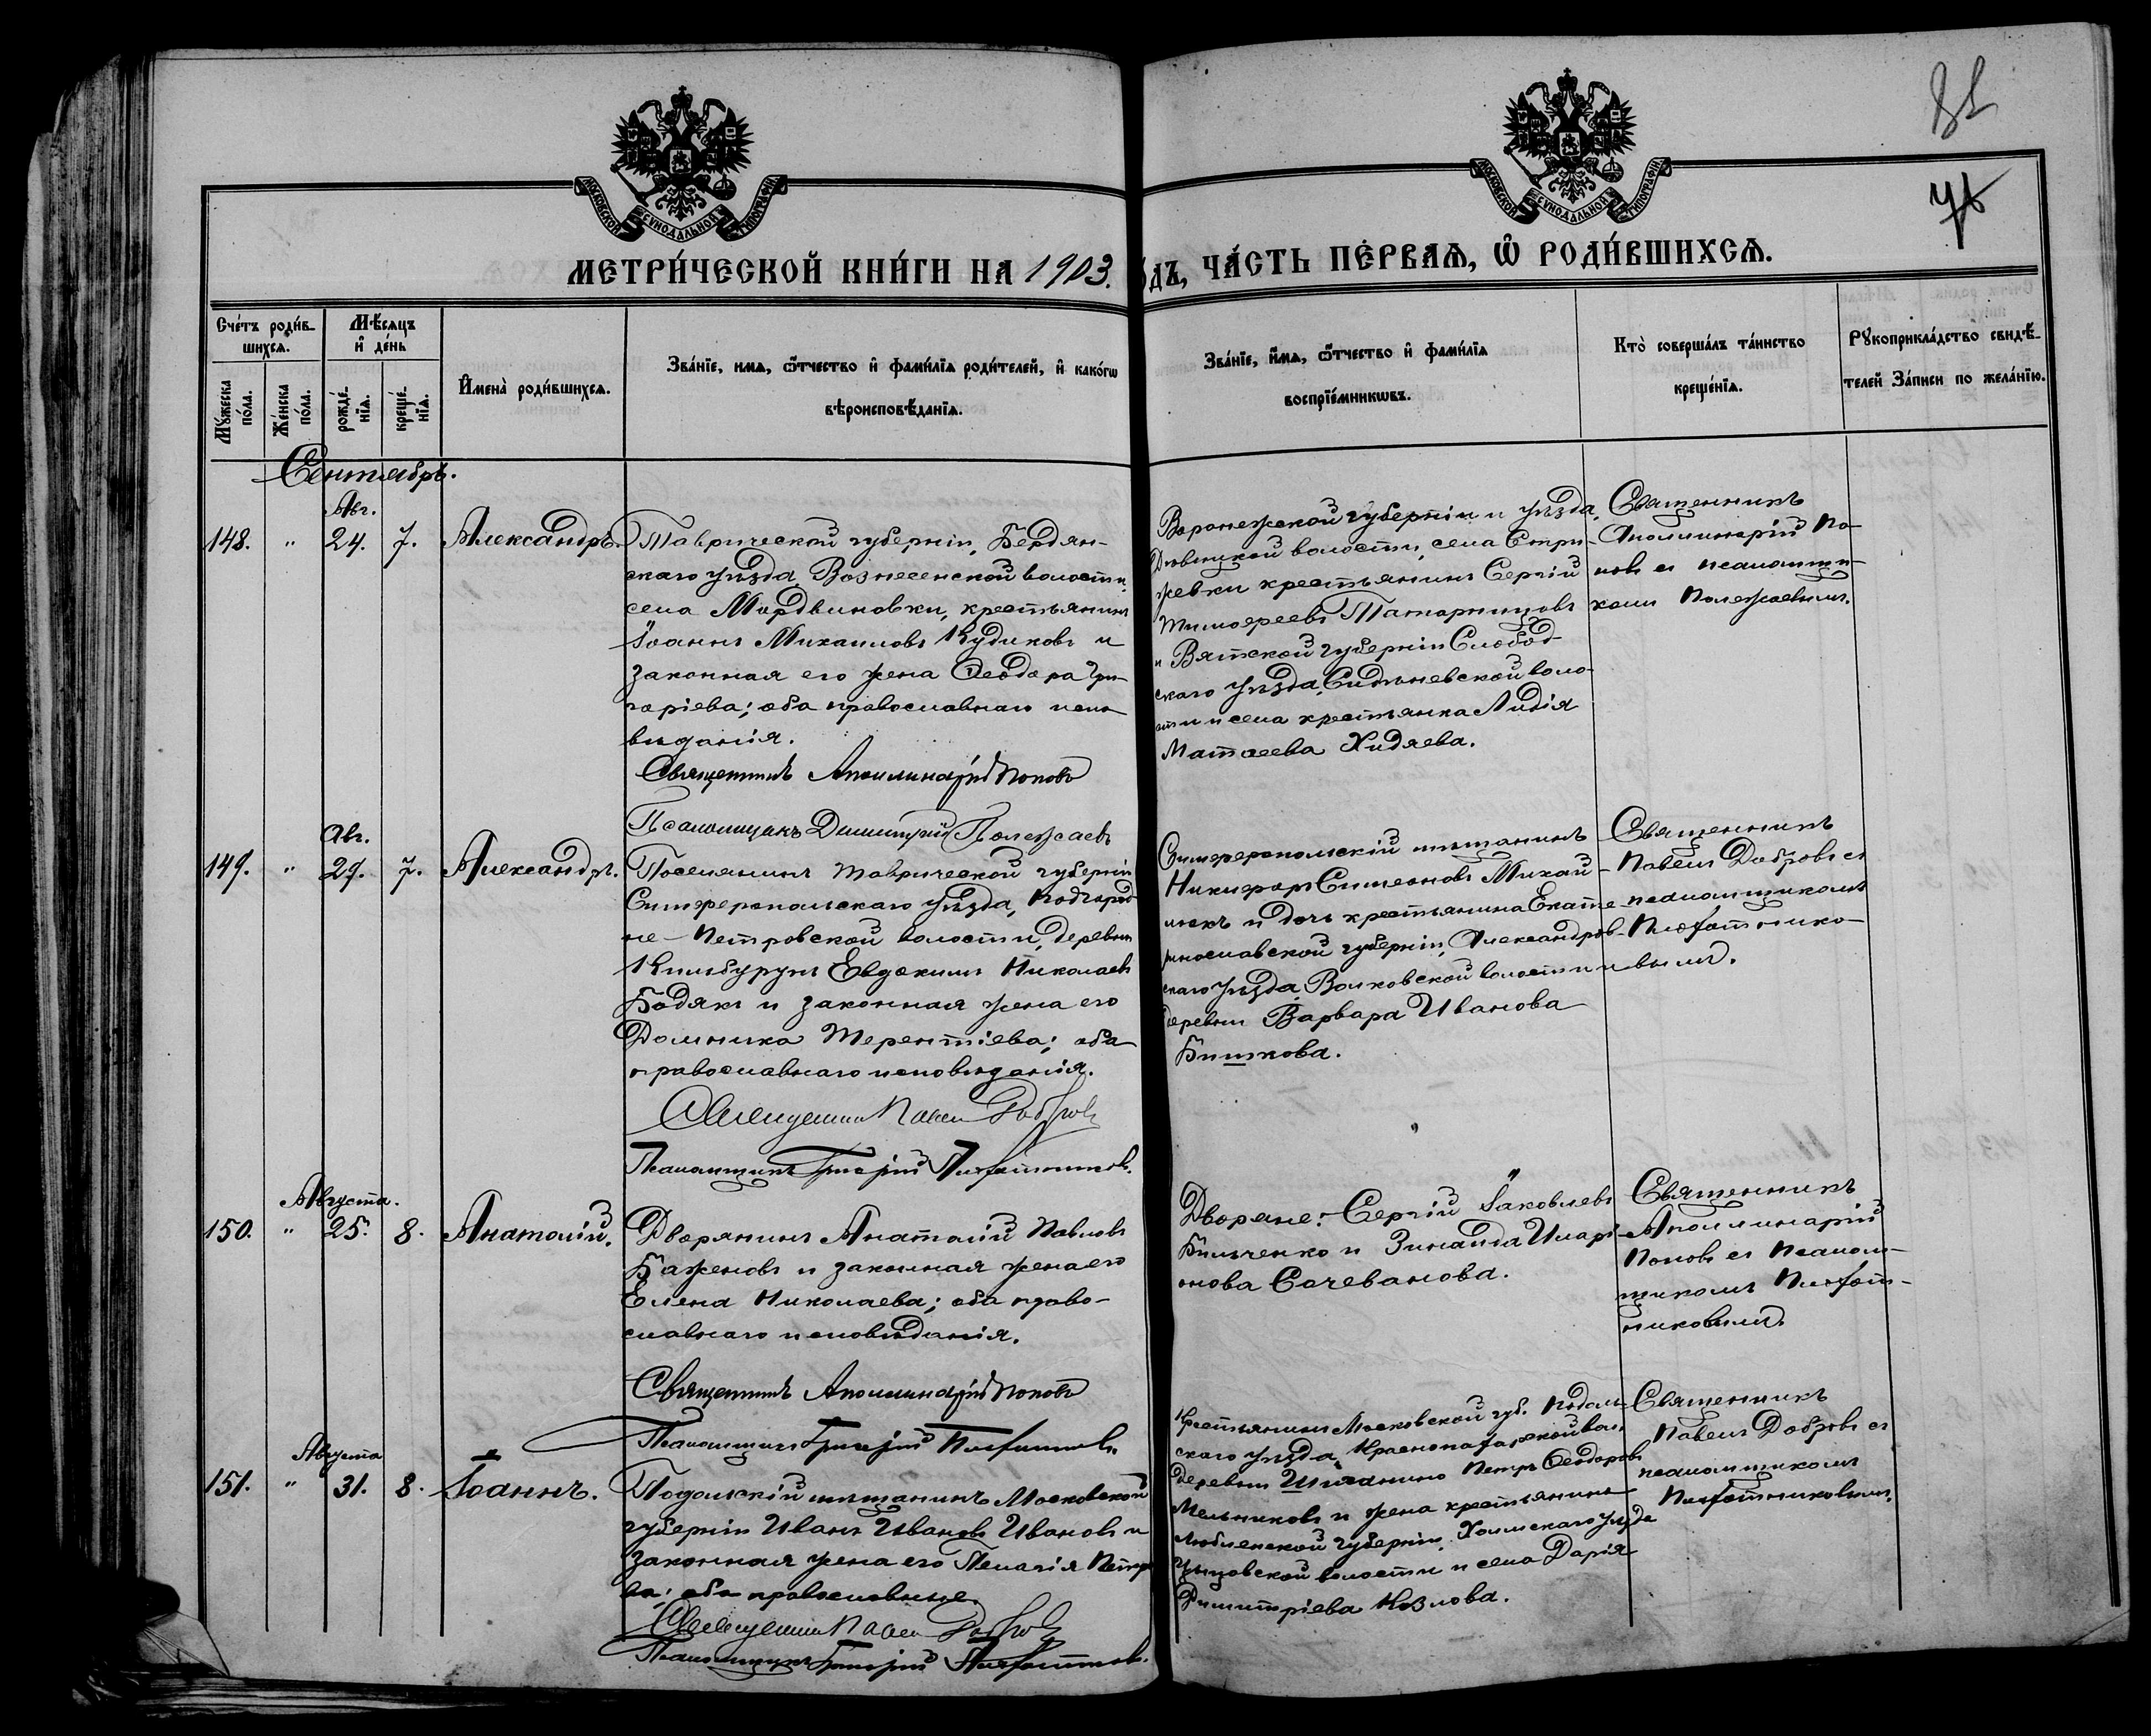 МОСКОВСКОЙ СУНОДАЛЬНОЙ ТИПОГРАФІИ
МОСКОВСКОЙ СУНОДАЛЬНОЙ ТИПОГРАФІИ
МЕТРИ́ЧЕСКОЙ КНИ́ГИ НА 1903.
ОДЪ, ЧА́СТЬ ПЕ́РВАѦ, Ѿ РОДИ́ВШИХСѦ.
Сче́тъ роди́в-
шихсѧ.
Мѣ́сѧцъ
и҆ де́нь
Мꙋ́жеска по́ла.
Же́нска по́ла.
рожде́-
нїѧ.
креще́-
нїѧ.
И҆мена̀ роди́вшихсѧ.
Зва́нїе, имѧ, ѻ҆́тчество и҆ фами́лїѧ роди́телей, и҆ како́гѡ
вѣроисповѣ́данїѧ.
Зва́нїе, и҆́мѧ, ѻ҆́тчество и҆ фами́лїѧ
воспрїе́мникѡвъ.
Кто̀ соверша́лъ та́инство
креще́нїѧ.
Рꙋкоприкла́дство свидѣ́-
телей За́писи по жела́нїю.
Сентябрь.
Авг.
148. " 24. 7. Александръ.
Таврической губерніи, Бердян-
скаго уѣзда, Вознесенской волости,
села Мордвиновки, крестьянинъ
Іоаннъ Михаиловъ Кудиковъ и
законная его жена Ѳеодора Гри-
горіева; оба православнаго испо-
вѣданія.
Священникъ Аполлинарій Поповъ
Псаломщикъ Димитрій Полежаевъ
Воронежской губерніи и уѣзда,
волости, села Стри-
жевки крестьянинъ Сергій
Тимоѳеевъ Татарницовъ
и Вятской губерніи Слобод-
скаго уѣзда, воло-
сти и села крестьянка Лидія
Матѳеева Хидяева.
Священникъ
Аполлинарій По-
повъ съ псаломщи-
комъ Полежаевымъ.
Авг.
149. " 29. 7. Александръ.
Поселянинъ Таврической губерніи
Симферопольскаго уѣзда, Подгород-
не-Петровской волости, деревни
Кильбурунъ Евдокимъ Николаевъ
Бодякъ и законная жена его
Домника Терентіева; оба
православнаго исповѣданія.
Священникъ Павелъ Добровъ
Псаломщикъ Григорій
Симферопольскій мѣщанинъ
Никифоръ Симеоновъ Михай-
люкъ и дочь крестьянина Екате-
ринославской губерніи, Александров-
скаго уѣзда, Волковской волости и
деревни Варвара Иванова
Бишкова.
Священникъ
Павелъ Добровъ съ
псаломщикомъ
Августа.
150. " 25. 8. Анатолій.
Дворянинъ Анатолій Павловъ
Баженовъ и законная жена его
Елена Николаева; оба право-
славнаго исповѣданія.
Священникъ Аполлинарій Поповъ
Псаломщикъ Григорій
Дворяне: Сергій Іаковлевъ
Бильченко и Зинаида Илларі-
онова Сачеванова.
Священникъ
Аполлинарій
Поповъ съ псалом-
щикомъ
Августа
151. " 31. 8. Іоаннъ.
Подольскій мѣщанинъ Московской
губерніи Иванъ Ивановъ Ивановъ и
законная жена его Пелагія Петро-
ва; оба православные.
Священникъ Павелъ Добровъ
Псаломщикъ Григорій
Крестьянинъ Московской губ. Подоль-
скаго уѣзда, Краснопахарской вол.
деревни Петръ Ѳеодоровъ
Мельниковъ и жена крестьянина
Люблинской губерніи, Холмскаго уѣзда
волости и села Дарія
Димитріева Козлова.
Священникъ
Павелъ Добровъ съ
псаломщикомъ